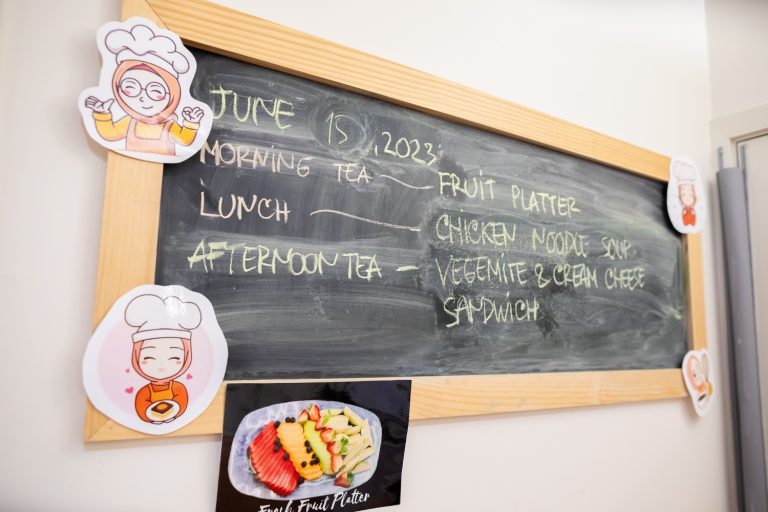 JUNE 15, 2023
MORNING TEA — FRUIT PLATTER
LUNCH — CHICKEN NOODLE SOUP
AFTERNOON TEA — VEGEMITE & CREAM CHEESE
SANDWICH
Fresh Fruit Platter